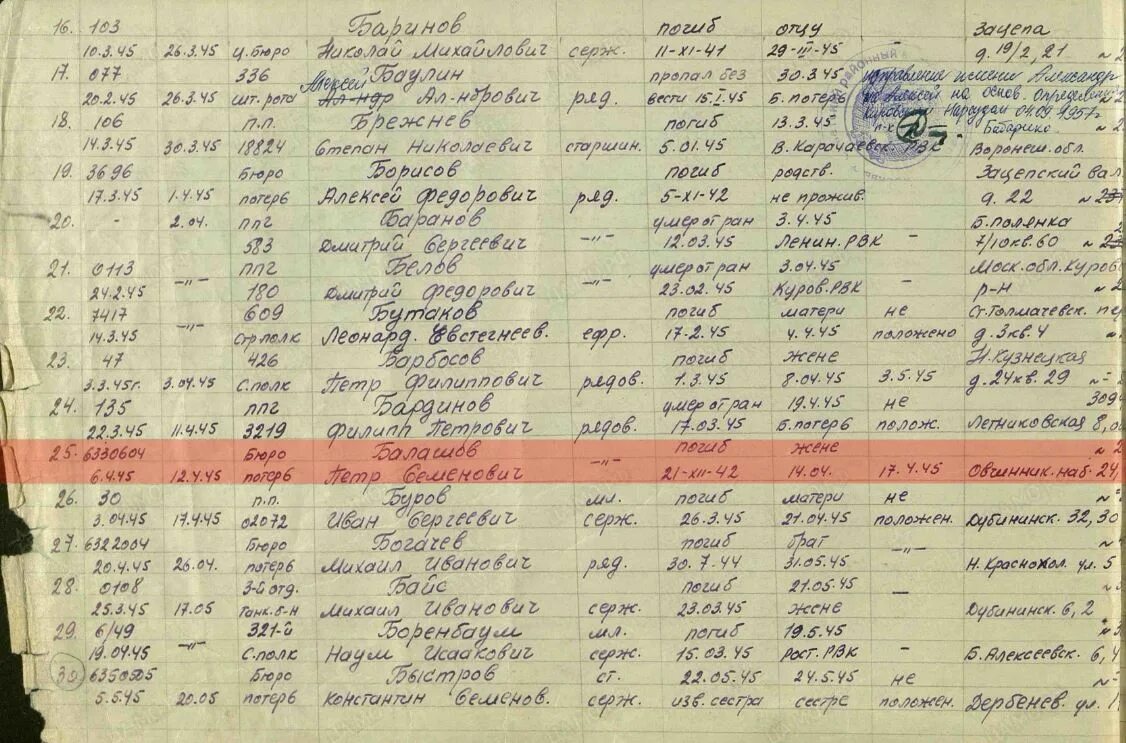 16. 103 Баринов погиб отцу Зацепа
10.3.45 26.3.45 ц.бюро Николай Михайлович серж. 11-XI-41 29-III-45 – д. 19/2, 21
17. 077 336 Алексей Баулин пропал без 30.3.45 исправление имени Александр
20.2.45 26.3.45 шт. рота Ал-ндр Ал-нбрович ряд. вести 15.I.45 Б. потерь на Алексей на основ. определен.
Кировским Нарсудом 04.09.1957г
18. 106 п.п. Брежнев погиб 13.3.45 п-х Бабарико
14.3.45 30.3.45 18824 Степан Николаевич старшин. 5.01.45 В. Карачаевск. РВК Воронеш. обл.
19. 3696 Бюро Борисов погиб родств. Зацепский вал
17.3.45 1.4.45 потерь Алексей Федорович ряд. 5-XI-42 не прожив. д. 22
20. - 2.04. ппг Баранов умер от ран 3.4.45 Б. Полянка
583 Дмитрий Сергеевич -"- 12.03.45 Ленин. РВК – 7/10 кв. 60
21. 0113 ппг Белов умер от ран 3.04.45 Моск. обл. Куров
24.2.45 -"- 180 Дмитрий Федорович -"- 23.02.45 Куров. РВК – р-н
22. 7417 609 Бутаков погиб матери не Ст. Толмачевск. пер
14.3.45 -"- Стр полк Леонард. Евстегнеев. ефр. 17.2.45 4.4.45 положено д. 3 кв. 4
23. 47 426 Барбосов погиб жене Н. Кузнецкая
3.3.45г. 3.04.45 С. полк Петр Филиппович рядов. 1.3.45 8.04.45 3.5.45 д. 24 кв. 29
24. 135 ппг Бардинов умер от ран 19.4.45 не
22.3.45 11.4.45 3219 Филипп Петрович рядов. 17.03.45 Б. потерь полож. Летниковская 8,
25. 6330604 Бюро Балашов погиб жене
6.4.45 12.4.45 потерь Петр Семенович -"- 21-XII-42 14.04. 17.4.45 Овчинник. наб. 24,
26. 30 п.п. Буров мл. погиб матери не
3.04.45 17.4.45 02072 Иван Сергеевич серж. 26.3.45 21.04.45 положен. Дубининск. 32, 30
27. 6322004 Бюро Богачев погиб брат
20.4.45 26.04. потерь Михаил Иванович ряд. 30.7.44 31.05.45 -"- Н. Краснохол. ул. 5
28. 0108 3-й отд. Байс погиб 21.05.45
25.3.45 17.05 Танк. б-н Михаил Иванович серж. 23.03.45 жене – Дубининск. 6, 2
29. 6/49 321-й Боренбаум мл. погиб 19.5.45
19.04.45 -"- С. полк Наум Исаакович серж. 15.03.45 Рост. РВК -"- Б. Алексеевск. 6, 4
30 6350505 Бюро Быстров ст. 22.05.45 24.5.45 не
5.5.45 20.05 потерь Константин Семенов. серж. изв. сестра сестре положен. Дербенев. ул.